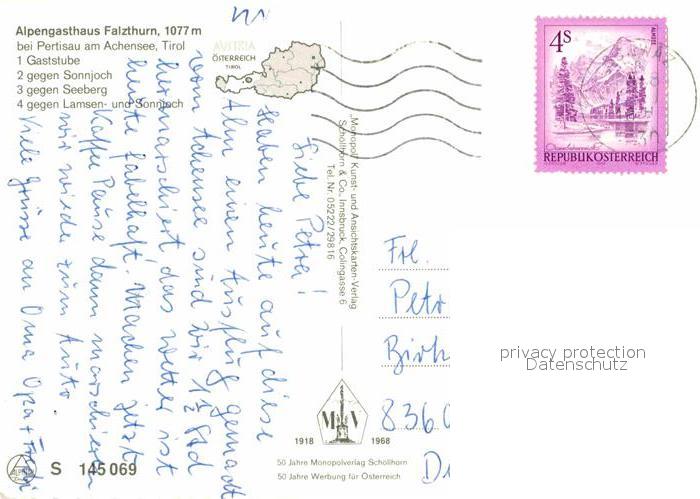 Alpengasthaus Falzthurn, 1077 m
bei Pertisau am Achensee, Tirol
1 Gaststube
2 gegen Sonnjoch
3 gegen Seeberg
4 gegen Lamsen- und Sonnjoch
AUSTRIA
ÖSTERREICH
TIROL
4S
ALMSEE
REPUBLIK ÖSTERREICH
„Monopol" Kunst- und Ansichtskarten-Verlag
Schöllhorn & Co., Innsbruck, Colingasse 6
Tel. Nr. 05222/29816
Liebe Petra!
Haben heute auf diese
Alm einen Ausflug gemacht
vom Achensee sind wir 1½ Std
hermarschiert das Wetter ist
heute fabelhaft. Machen jetzt
Kaffee Pause dann marschieren
wir wieder zum Auto.
Viele Grüsse an Oma Opa +
Frl.
Petr
Birk
8360
privacy protection
Datenschutz
M V
1918 1968
50 Jahre Monopolverlag Schöllhorn
50 Jahre Werbung für Österreich
S 145 069